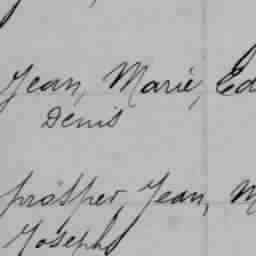 Jean, Marie, Ed
Denis
prosper, Jean, M
Joseph